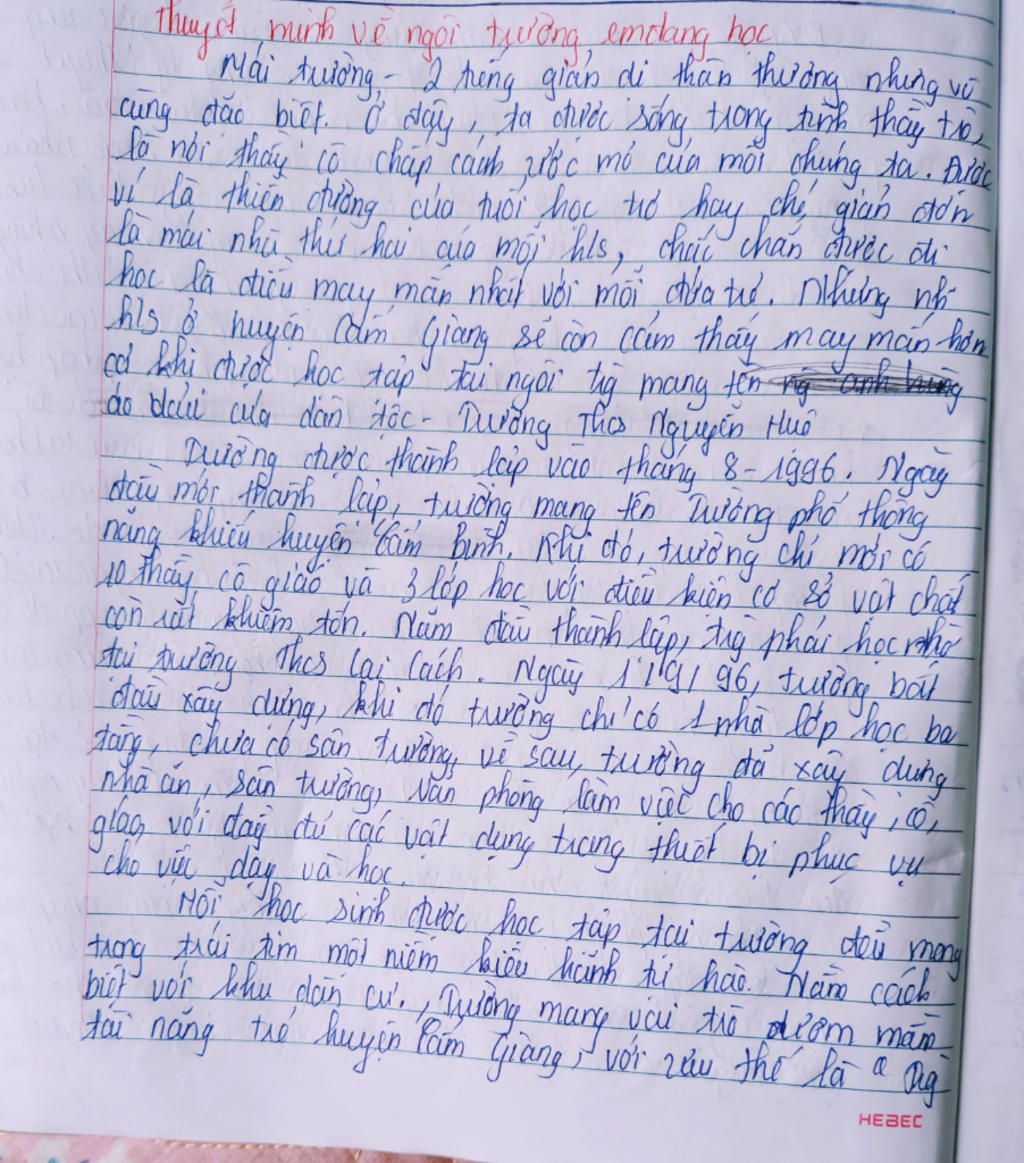 Thuyết minh về ngôi trường em đang học
Mái trường - 2 tiếng giản dị thân thương nhưng vô
cùng đặc biệt. Ở đây, ta được sống trong tình thầy trò,
là nơi thầy cô chắp cánh ước mơ của mỗi chúng ta. Được
ví là thiên đường của tuổi học trò hay chỉ giản đơn
là mái nhà thứ hai của mỗi hls, chắc chắn được đi
học là điều may mắn nhất với mỗi đứa trẻ. Nhưng nh~
hls ở huyện Cẩm Giàng sẽ còn cảm thấy may mắn hơn
cả khi được học tập tại ngôi trg mang tên
áo dấu của dân tộc - Trường Thcs Nguyễn Huệ
Trường được thành lập vào tháng 8-1996. Ngày
đầu mới thành lập, trường mang tên Trường phổ thông
năng khiếu huyện Cẩm bình. Khi đó, trường chỉ mới có
10 thầy cô giáo và 3 lớp học với điều kiện cơ sở vật chất
còn rất khiêm tốn. Năm đầu thành lập, trg phải học nhờ
tại trường Thcs Lai Cách. Ngày 1/9/96, trường bắt
đầu xây dựng, khi đó trường chỉ có 1 nhà lớp học ba
tầng, chưa có sân trường, về sau, trường đã xây dựng
nhà ăn, sân trường, văn phòng làm việc cho các thầy, cô,
giáo, với đầy đủ các vật dụng trang thiết bị phục vụ
cho việc dạy và học.
Mỗi học sinh được học tập tại trường đều mang
trong trái tim một niềm kiêu hãnh tự hào. Nằm cách
biệt với khu dân cư, Trường mang vai trò ươm mầm
tài năng trẻ huyện Cẩm Giàng, với ưu thế là " Trg
HEBEC